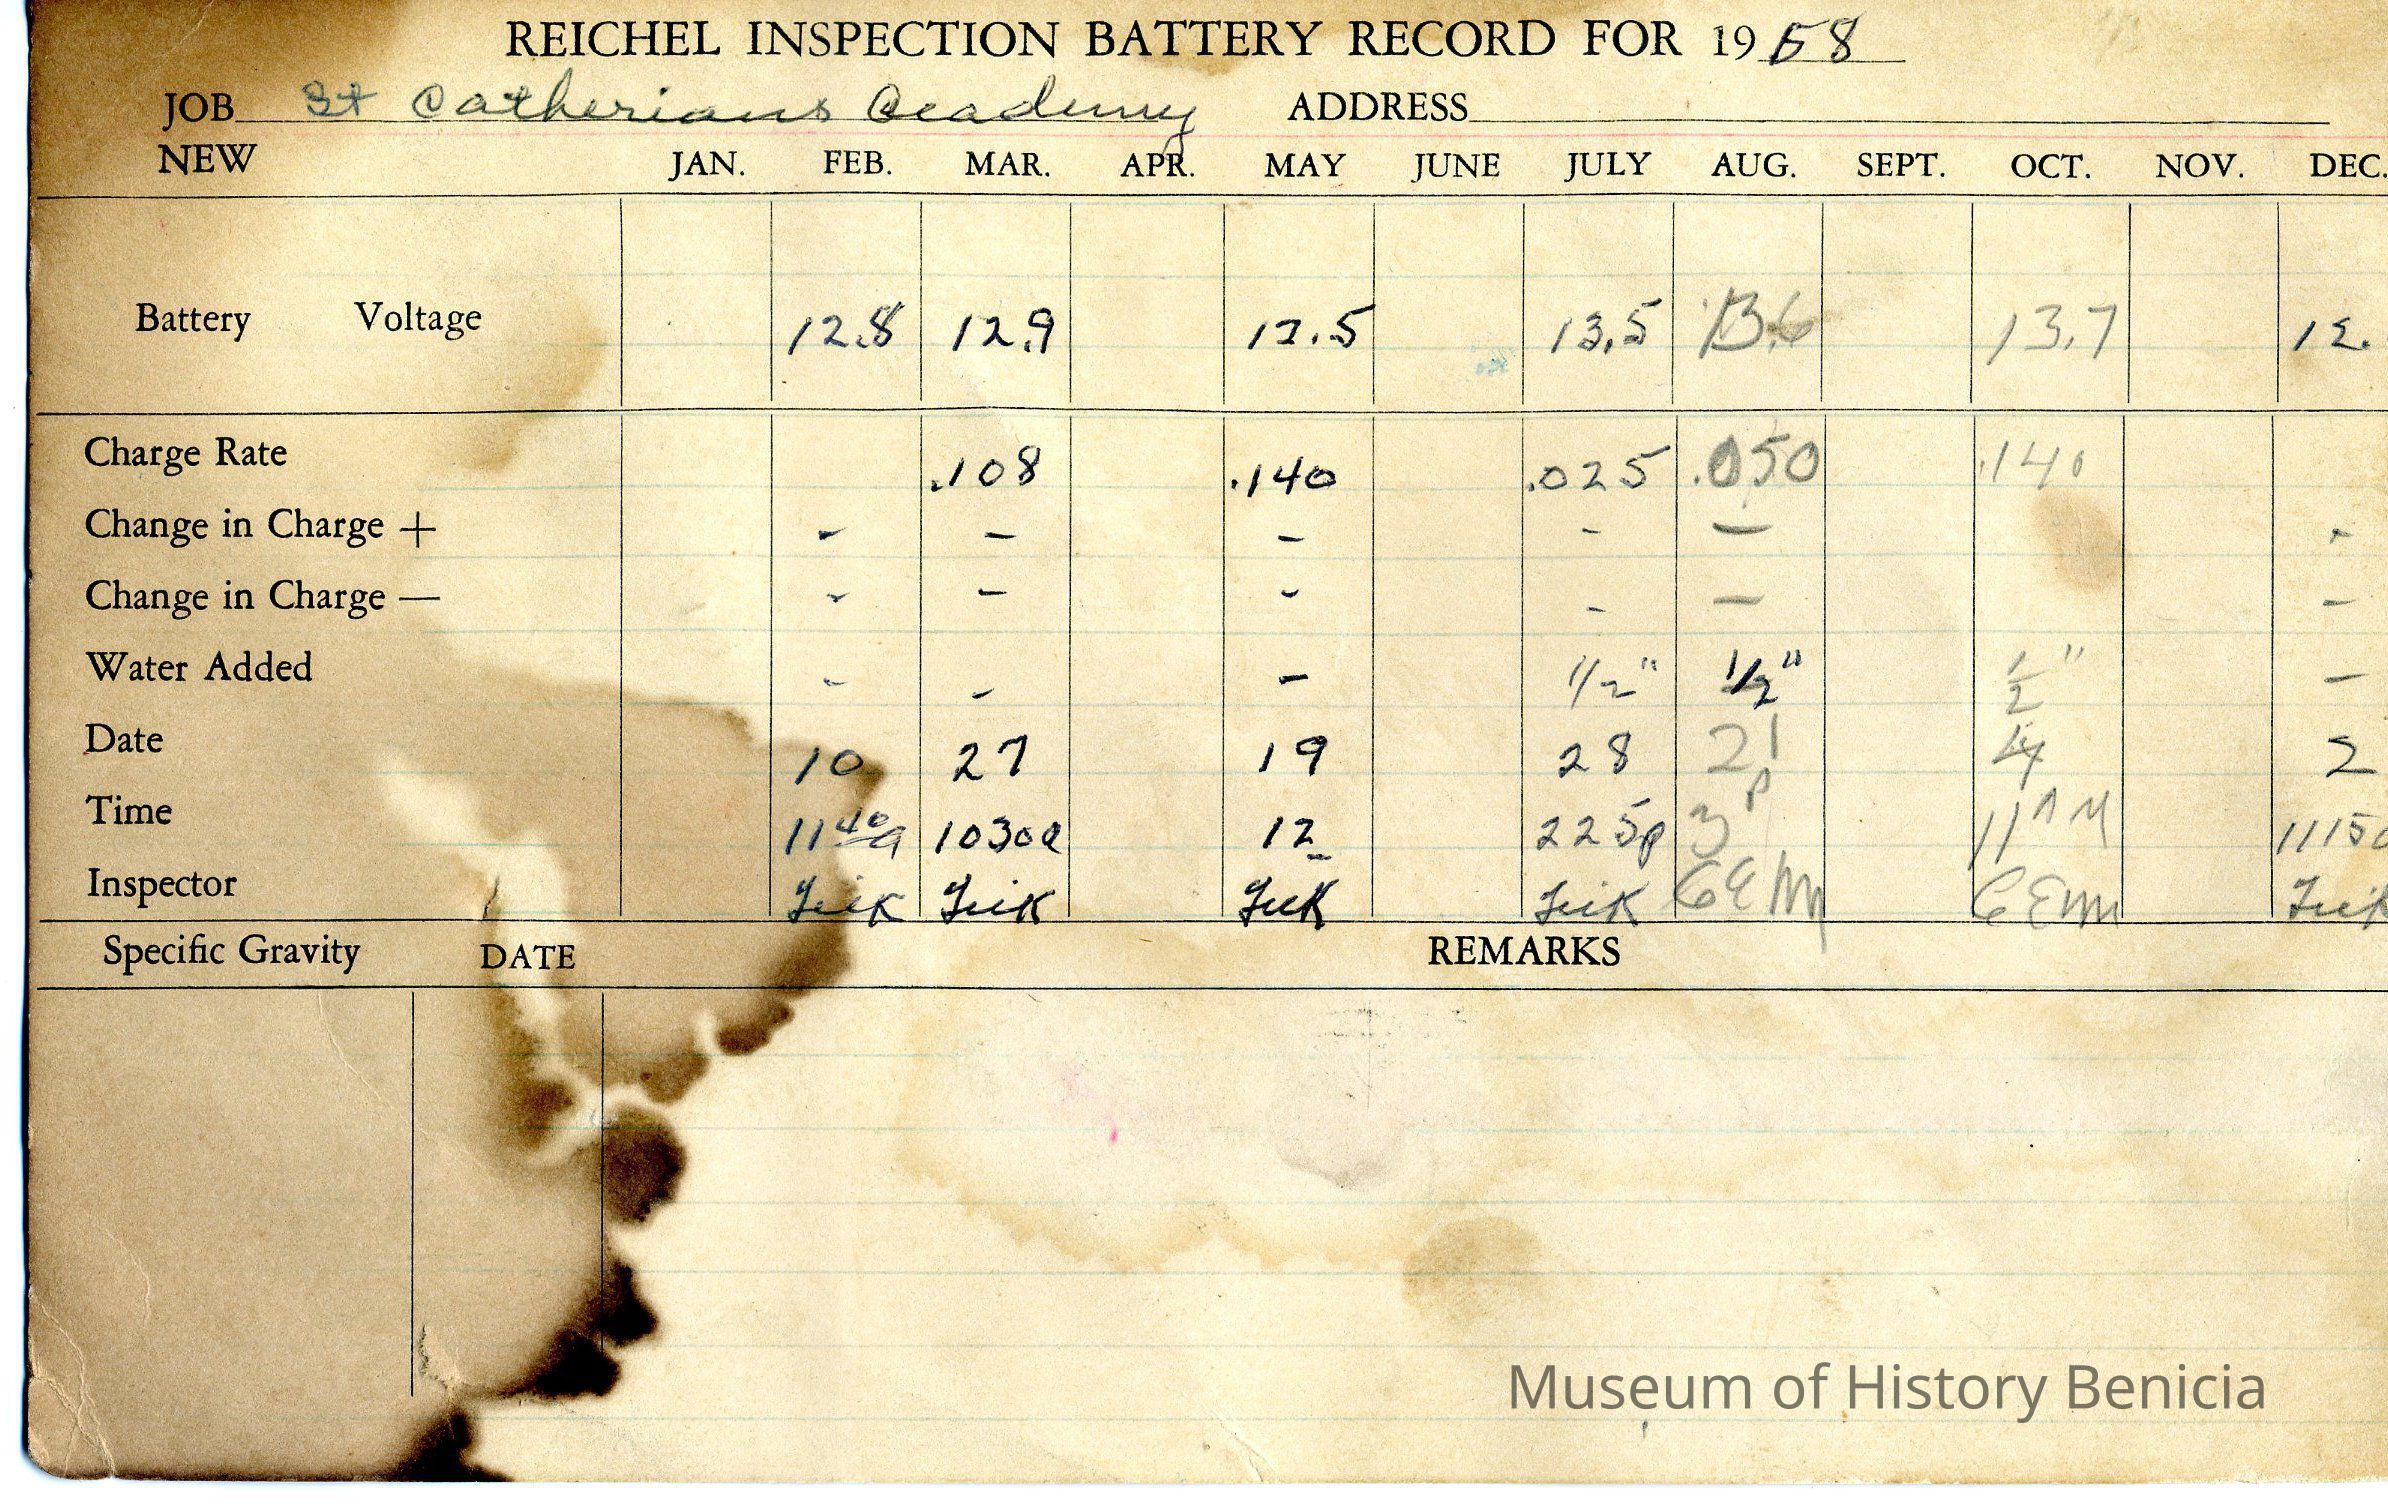 REICHEL INSPECTION BATTERY RECORD FOR 1958
JOB St Catherians Academy ADDRESS
NEW JAN. FEB. MAR. APR. MAY JUNE JULY AUG. SEPT. OCT. NOV. DEC.
Battery Voltage 12.8 12.9 12.5 13.5 13.6 13.7 12.
Charge Rate .108 .140 .025 .050 .140
Change in Charge + - - - - - -
Change in Charge — - - - - - -
Water Added - - - 1/2" 1/2" 1/2" -
Date 10 27 19 28 21 4 2
Time 11 40 a 1030a 12 225p 3 P 11 AM 1115
Inspector
Specific Gravity DATE REMARKS
Museum of History Benicia